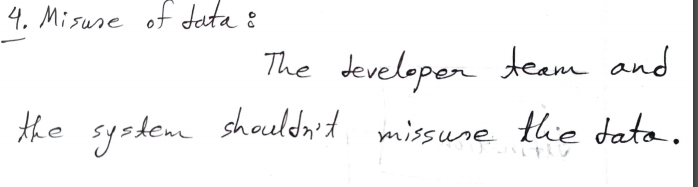 4. Misuse of data :
The developer team and
the system shouldn't missuse the data.